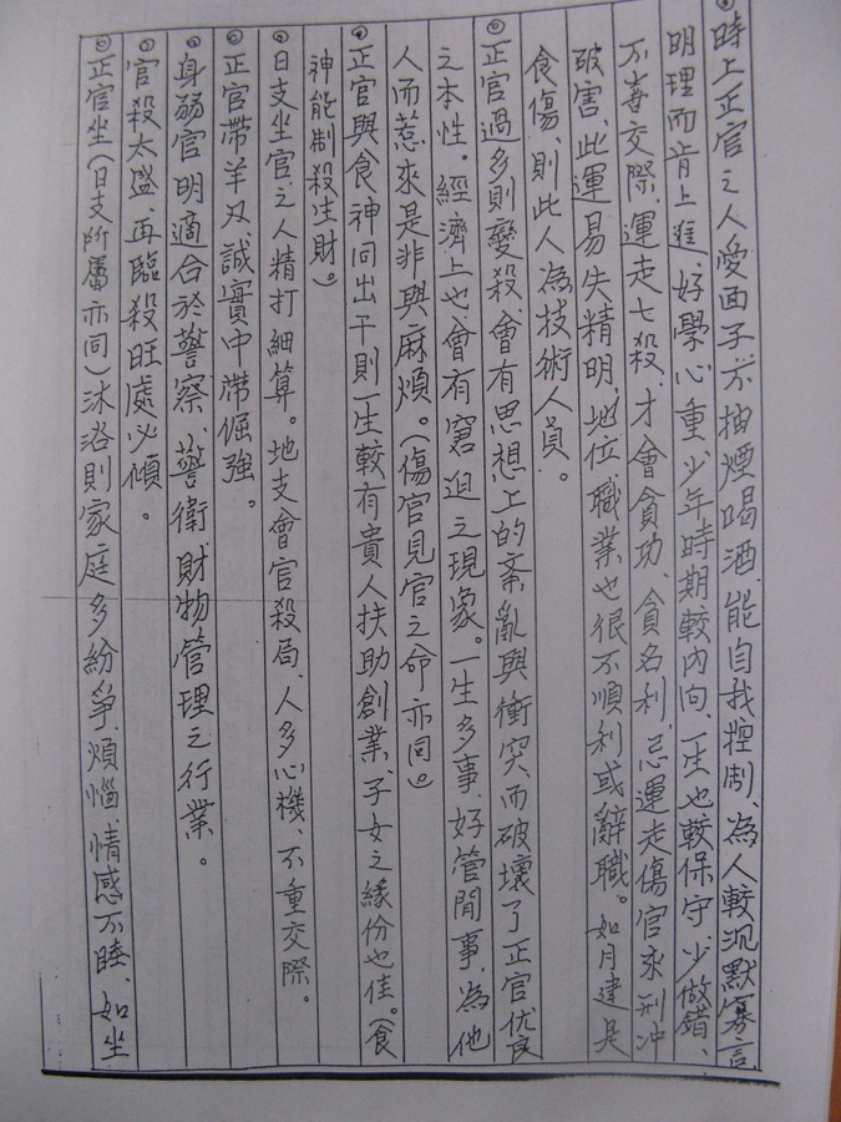 時上正官之人愛面子不抽煙喝酒、能自我控制、為人較沉默寡言
明理而肯上進、好學心重、少年時期較內向、一生也較保守、少做錯、
不善交際、運走七殺、才會貪功、貪名利、忌運走傷官來刑冲
破害、此運易失精明、地位職業也很不順利或辭職。如月建是
食傷、則此人為技術人員。
正官過多則變殺、會有思想上的紊亂與衝突、而破壞了正官优良
之本性。經濟上也會有窘迫之現象。一生多事、好管閒事、為他
人而惹來是非與麻煩。(傷官見官之命亦同。)
正官與食神同出干則一生較有貴人扶助創業、子女之緣份也佳。(食
神能制殺生財。)
日支坐官之人精打細算。地支會官殺局、人多心機、不重交際。
正官帶羊刃、誠實中帶倔強。
身弱官明適合於警察、警衛財物管理之行業。
官殺太盛、再臨殺旺處必傾。
正官坐(日支所屬亦同)沐浴則家庭多紛爭、煩惱、情感不睦、如坐